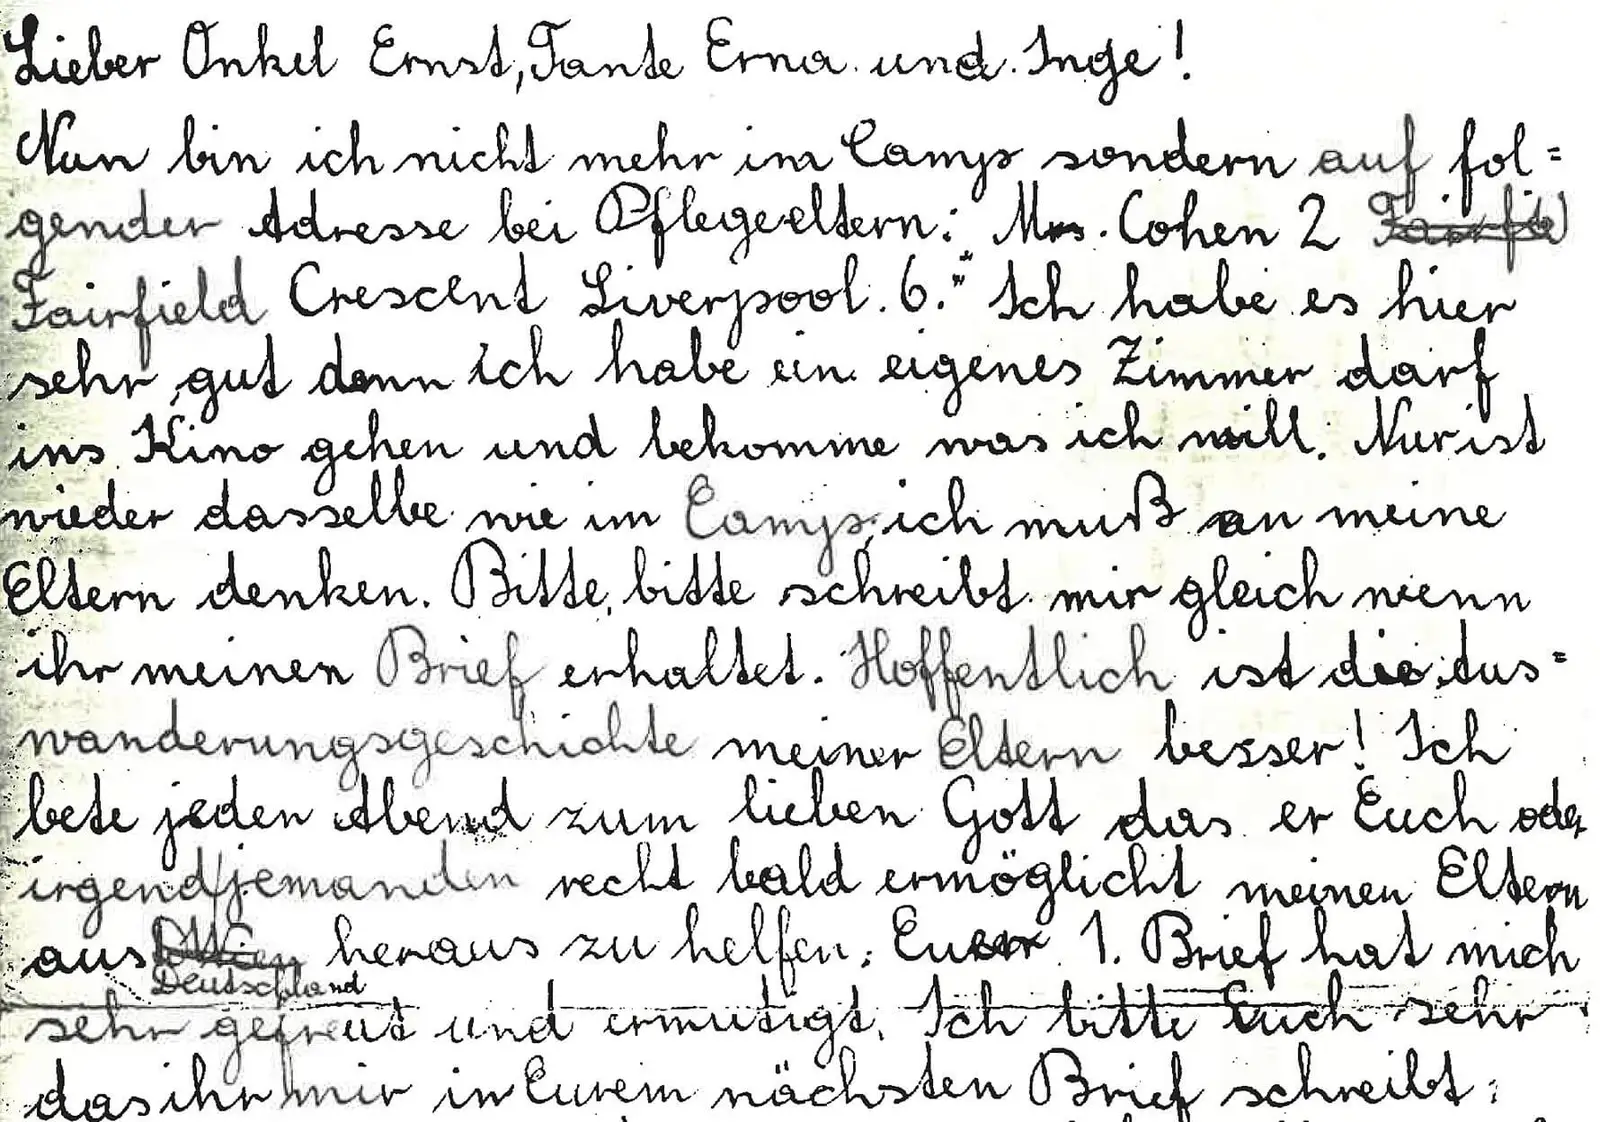 Lieber Onkel Ernst, Tante Erna und Inge!
Nun bin ich nicht mehr im Camp sondern auf fol=
gender Adresse bei Pflegeeltern: Mrs. Cohen 2 Fairfie
Fairfield Crescent Liverpool. 6." Ich habe es hier
sehr gut denn ich habe ein eigenes Zimmer darf
ins Kino gehen und bekomme was ich will. Nur ist
wieder dasselbe wie im Camp, ich muß an meine
Eltern denken. Bitte, bitte schreibt mir gleich wenn
ihr meinen Brief erhaltet. Hoffentlich ist die Aus=
wanderungsgeschichte meiner Eltern besser! Ich
bete jeden Abend zum lieben Gott das er Euch oder
irgendjemanden recht bald ermöglicht meinen Eltern
aus Wien heraus zu helfen. Euer 1. Brief hat mich
Deutschland
sehr gefreut und ermutigt. Ich bitte Euch sehr
das ihr mir in Eurem nächsten Brief schreibt: